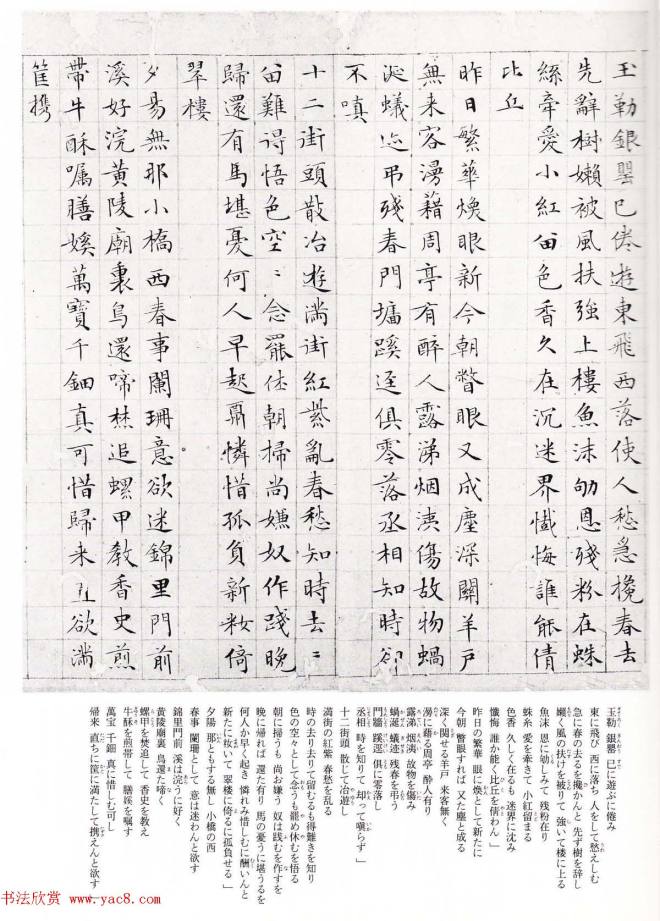 玉勒銀罌已倦遊東飛西落使人愁急攙春去
先辭樹嬾被風扶強上樓魚沫劬恩殘粉在蛛
絲牽愛小紅留色香久在沉迷界懺悔誰能倩
比丘
昨日繁華煥眼新今朝瞥眼又成塵深關羊戶
無来客漫藉周亭有醉人露涕烟洟傷故物蝸
涎蟻迹弔殘春門墻蹊逕俱零落丞相知時卻
不嗔
十二街頭散冶遊滿街紅紫亂春愁知時去〻
留難得悟色空〻念罷休朝掃尚嫌奴作踐晚
歸還有馬堪憂何人早起酬憐惜孤負新粧倚
翠樓
夕昜無那小橋西春事闌珊意欲迷錦里門前
溪好浣黃陵廟裏鳥還啼焚追螺甲教香史煎
帶牛酥囑膳媛萬寶千鈿真可惜歸来直欲滿
筐攜
玉勒 銀罌 已に遊ぶに倦み
東に飛び 西に落ち 人をして愁えしむ
急に春の去るを攙かんと 先ず樹を辞し
嬾く風の扶けを被りて 強いて楼に上る
魚沫 恩に劬しみて 残粉在り
蛛糸 愛を牽きて 小紅留まる
色香 久しく在るも 迷界に沈み
懺悔 誰か能く比丘を倩わん 」
昨日の繁華 眼に煥として新たに
今朝 瞥眼すれば 又た塵と成る
深く関せる羊戸 来客無く
漫に藉る周亭 酔人有り
露涕 烟洟 故物を傷み
蝸涎 蟻迹 残春を弔う
門牆 蹊逕 俱に零落し
丞相 時を知りて 却って嗔らず 」
十二街頭 散じて冶遊し
満街の紅紫 春愁を乱る
時の去り去りて留むるも得難きを知り
色の空々として念うも罷め休むを悟る
朝に掃うも 尚お嫌う 奴は践むを作すを
晩に帰れば 還た有り 馬の憂うに堪うるを
何人か早く起き 憐れみ惜しむに酬いんと
新たに粧いて 翠楼に倚るに孤負せる 」
夕陽 那ともする無し 小橋の西
春事 闌珊として 意は迷わんと欲す
錦里門前 溪は浣うに好く
黄陵廟裏 鳥還た啼く
螺甲を焚追して 香史を教え
牛酥を煎帯して 膳媛を嘱す
萬宝 千鈿 真に惜しむ可し
帰来 直ちに筐に満たして携えんと欲す
书法欣赏 www.yac8.com